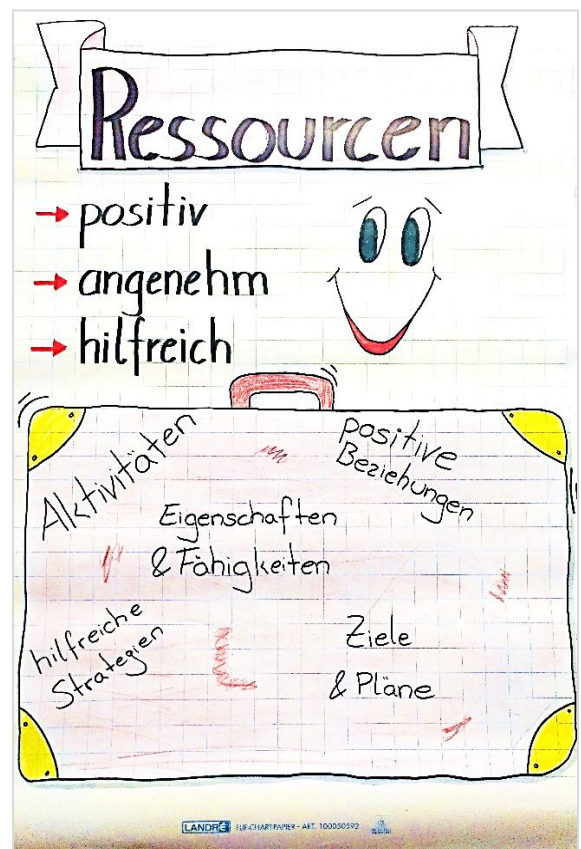 Ressourcen
→ positiv
→ angenehm
→ hilfreich
Aktivitäten
positive
Beziehungen
Eigenschaften
& Fähigkeiten
hilfreiche
Strategien
Ziele
& Pläne
LANDRÉ FLIP-CHART-PAPIER - ART. 100050592